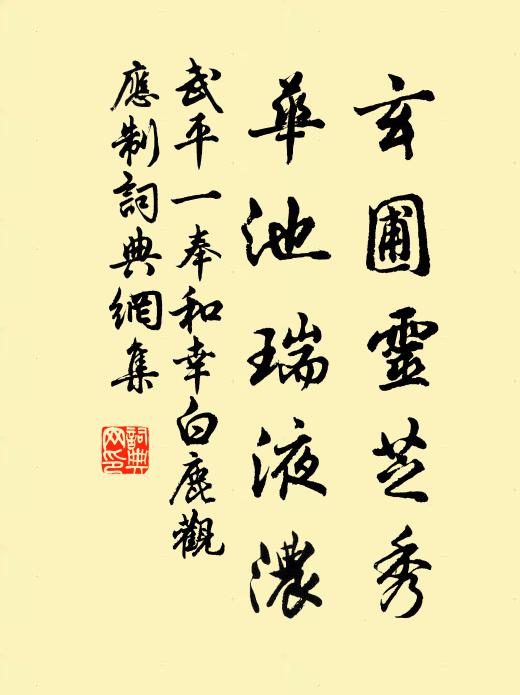 玄圃靈芝秀
華池瑞液濃
武平一奉和幸白鹿觀
應制詞典網集
詞典網印